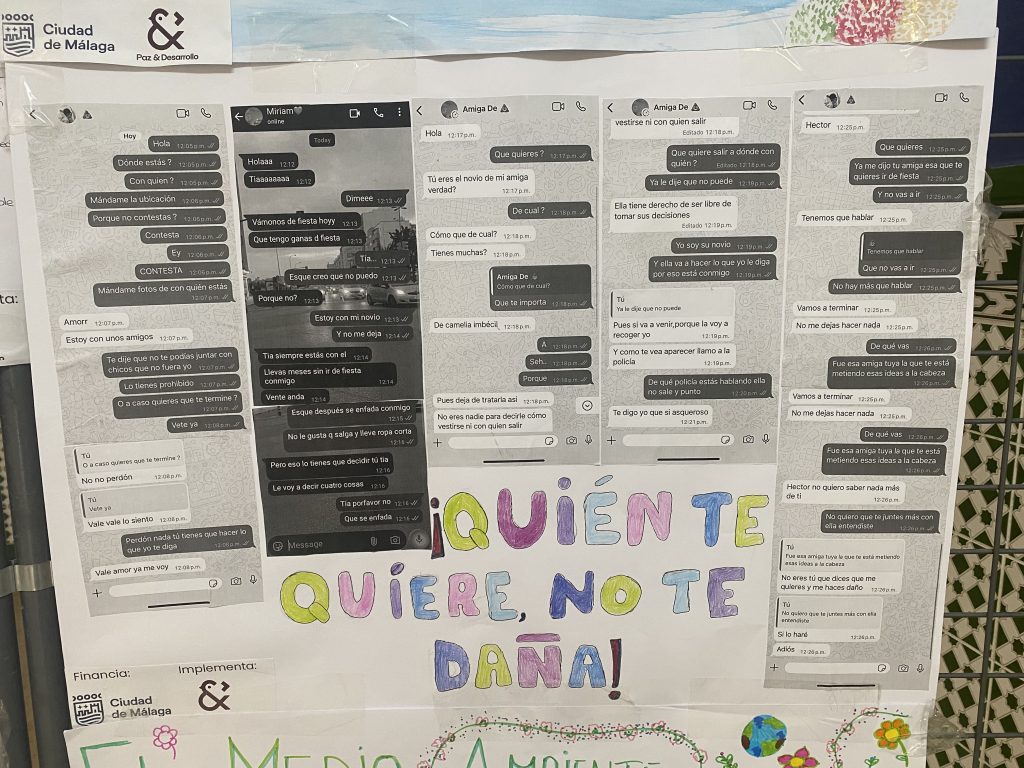 Ciudad
de Málaga
Paz & Desarrollo
Hoy
Hola 12:05 p.m.
Dónde estás ? 12:05 p.m.
Con quien ? 12:06 p.m.
Mándame la ubicación 12:06 p.m.
Porque no contestas ? 12:06 p.m.
Contesta 12:06 p.m.
Ey 12:06 p.m.
CONTESTA 12:06 p.m.
Mándame fotos de con quién estás
12:07 p.m.
Amorr 12:07 p.m.
Estoy con unos amigos 12:07 p.m.
Te dije que no te podías juntar con
chicos que no fuera yo 12:07 p.m.
Lo tienes prohibido 12:07 p.m.
O a caso quieres que te termine ?
12:07 p.m.
Vete ya 12:08 p.m.
Tú
O a caso quieres que te termine ?
No no perdón 12:08 p.m.
Tú
Vete ya
Vale vale lo siento 12:08 p.m.
Perdón nada tú tienes que hacer lo
que yo te diga 12:08 p.m.
Vale amor ya me voy 12:08 p.m.
Miriam
online
Today
Holaaa 12:12
Tiaaaaaaaa 12:12
Dimeee 12:13
Vámonos de fiesta hoyy 12:13
Que tengo ganas d fiesta 12:13
Tia... 12:13
Esque creo que no puedo 12:13
Porque no? 12:13
Estoy con mi novio 12:13
Y no me deja 12:14
Tia siempre estás con el 12:14
Llevas meses sin ir de fiesta
conmigo 12:14
Vente anda 12:14
Esque después se enfada conmigo
12:15
No le gusta q salga y lleve ropa corta
12:16
Pero eso lo tienes que decidir tú tia
12:16
Le voy a decir cuatro cosas 12:16
Tia porfavor no 12:16
Que se enfada 12:16
Message
Amiga De
Hola 12:17 p.m.
Que quieres ? 12:17 p.m.
Tú eres el novio de mi amiga
verdad? 12:17 p.m.
De cual ? 12:18 p.m.
Cómo que de cual? 12:18 p.m.
Tienes muchas? 12:18 p.m.
Amiga De
Cómo que de cual?
Que te importa 12:18 p.m.
De camelia imbécil 12:18 p.m.
A 12:18 p.m.
Seh.. 12:18 p.m.
Porque 12:18 p.m.
Pues deja de tratarla asi 12:18 p.m.
No eres nadie para decirle cómo
vestirse ni con quien salir
Amiga De
vestirse ni con quien salir
Editado 12:18 p.m.
Que quiere salir a dónde con
quién ? Editado 12:18 p.m.
Ya le dije que no puede 12:19 p.m.
Ella tiene derecho de ser libre de
tomar sus decisiones
Editado 12:19 p.m.
Yo soy su novio 12:19 p.m.
Y ella va a hacer lo que yo le diga
por eso está conmigo 12:19 p.m.
Tú
Ya le dije que no puede
Pues si va a venir,porque la voy a
recoger yo 12:19 p.m.
Y como te vea aparecer llamo a la
policía 12:19 p.m.
De qué policía estás hablando ella
no sale y punto 12:20 p.m.
Te digo yo que si asqueroso
12:21 p.m.
Hector 12:25 p.m.
Que quieres 12:25 p.m.
Ya me dijo tu amiga esa que te
quieres ir de fiesta 12:25 p.m.
Y no vas a ir 12:25 p.m.
Tenemos que hablar 12:25 p.m.
Tenemos que hablar
Que no vas a ir 12:25 p.m.
No hay más que hablar 12:25 p.m.
Vamos a terminar 12:25 p.m.
No me dejas hacer nada 12:25 p.m.
De qué vas 12:26 p.m.
Fue esa amiga tuya la que te está
metiendo esas ideas a la cabeza
12:26 p.m.
Vamos a terminar 12:25 p.m.
No me dejas hacer nada 12:25 p.m.
De qué vas 12:26 p.m.
Fue esa amiga tuya la que te está
metiendo esas ideas a la cabeza
12:26 p.m.
Hector no quiero saber nada más
de ti 12:26 p.m.
No quiero que te juntes más con
ella entendiste 12:26 p.m.
Tú
Fue esa amiga tuya la que te está metiendo
esas ideas a la cabeza
No eres tú que dices que me
quieres y me haces daño 12:26 p.m.
Tú
No quiero que te juntes más con ella
entendiste
Si lo haré 12:26 p.m.
Adiós 12:26 p.m.
¡QUIÉN TE
QUIERE, NO TE
DAÑA!
Financia:
Implementa:
Ciudad
de Málaga
EL MEDIO AMBIENTE